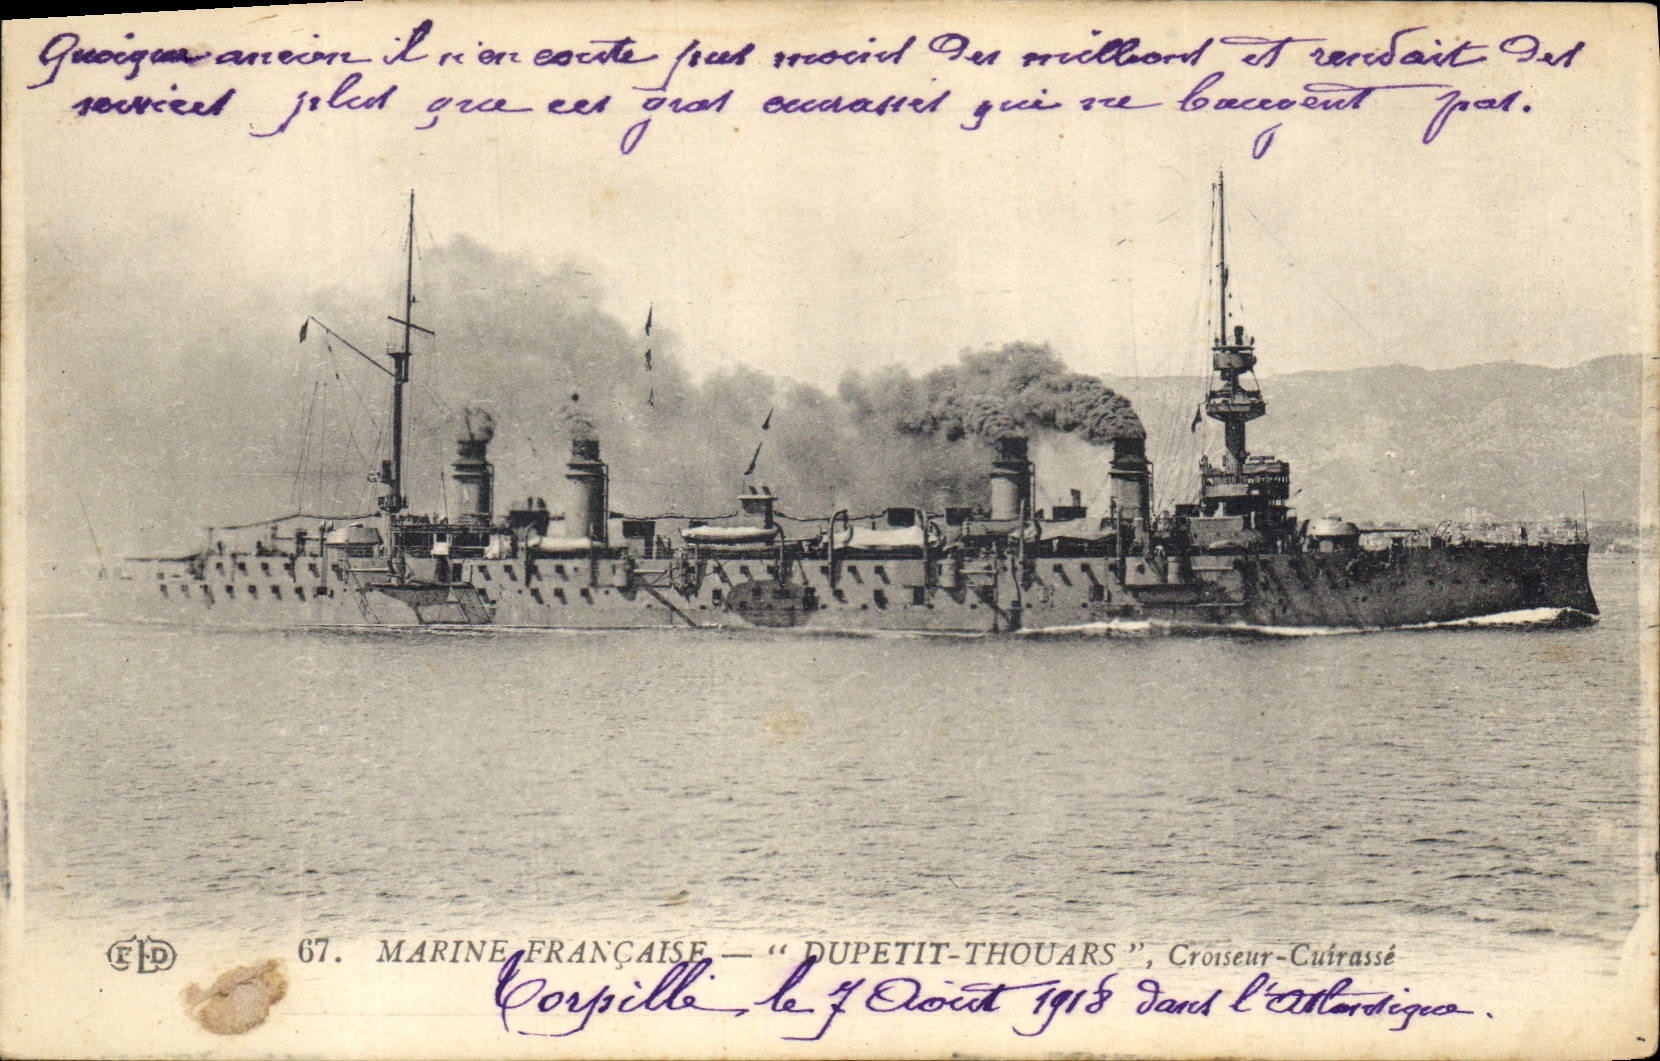 Quoique ancien il n'en coute pas moins des millions et rendait des
services plus que ces gros cuirassés qui ne bougent pas.
ELD
67. MARINE FRANÇAISE — " DUPETIT-THOUARS ", Croiseur-Cuirassé
Torpillé le 7 Août 1918 dans l'Atlantique.